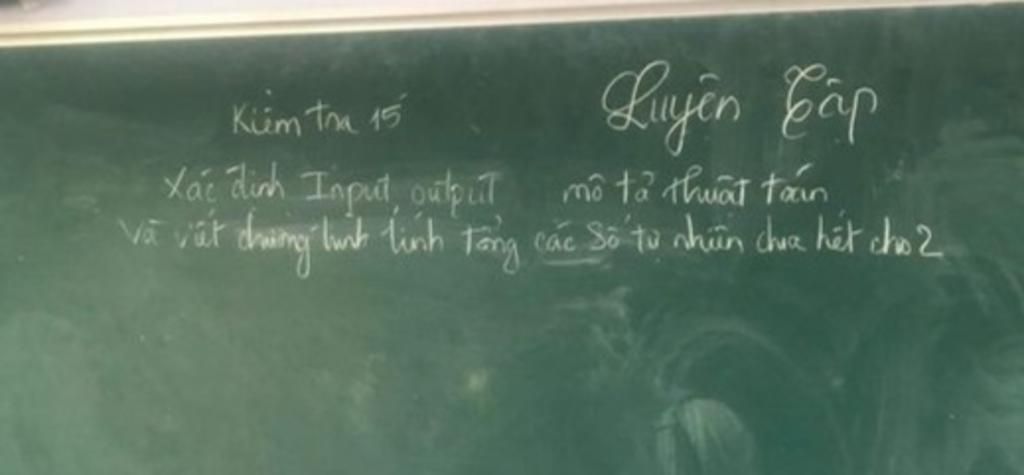 Luyện Tập
Kiểm tra 15'
Xác định Input, output mô tả thuật toán
Và viết chương trình tính tổng các số tự nhiên chia hết cho 2